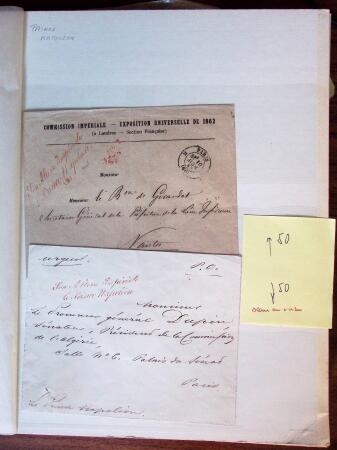 PRINCE
NAPOLEON
COMMISSION IMPÉRIALE — EXPOSITION UNIVERSELLE DE 1862
(à Londres — Section Française)
Son Altesse Impériale
Prince Napoléon
PARIS
Monsieur
Monsieur le Bon de Girardot
Secrétaire Général de la Préfecture de la Loire Inférieure
Nantes
urgent
P.O.
Son Altesse Impériale
le Prince Napoléon
Monsieur
Le Procureur général Dupin
Sénateur, Président de la Commission
de l'algérie
Salle No 6, Palais du Sénat
Paris
Le Prince Napoléon
↑ 50
↓ 50